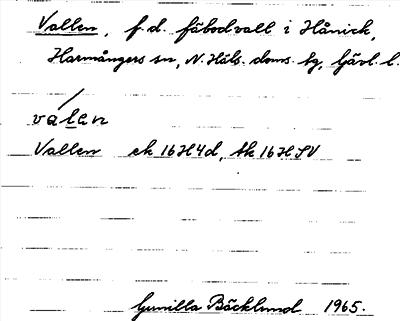 Vallen, f.d. fäbodvall i Hånick,
Harmångers sn, N. Häls. doms. hg, Gävl. l.
valan
Vallen ek 16H4d, tk 16H SV
Gunilla Bäcklund 1965.